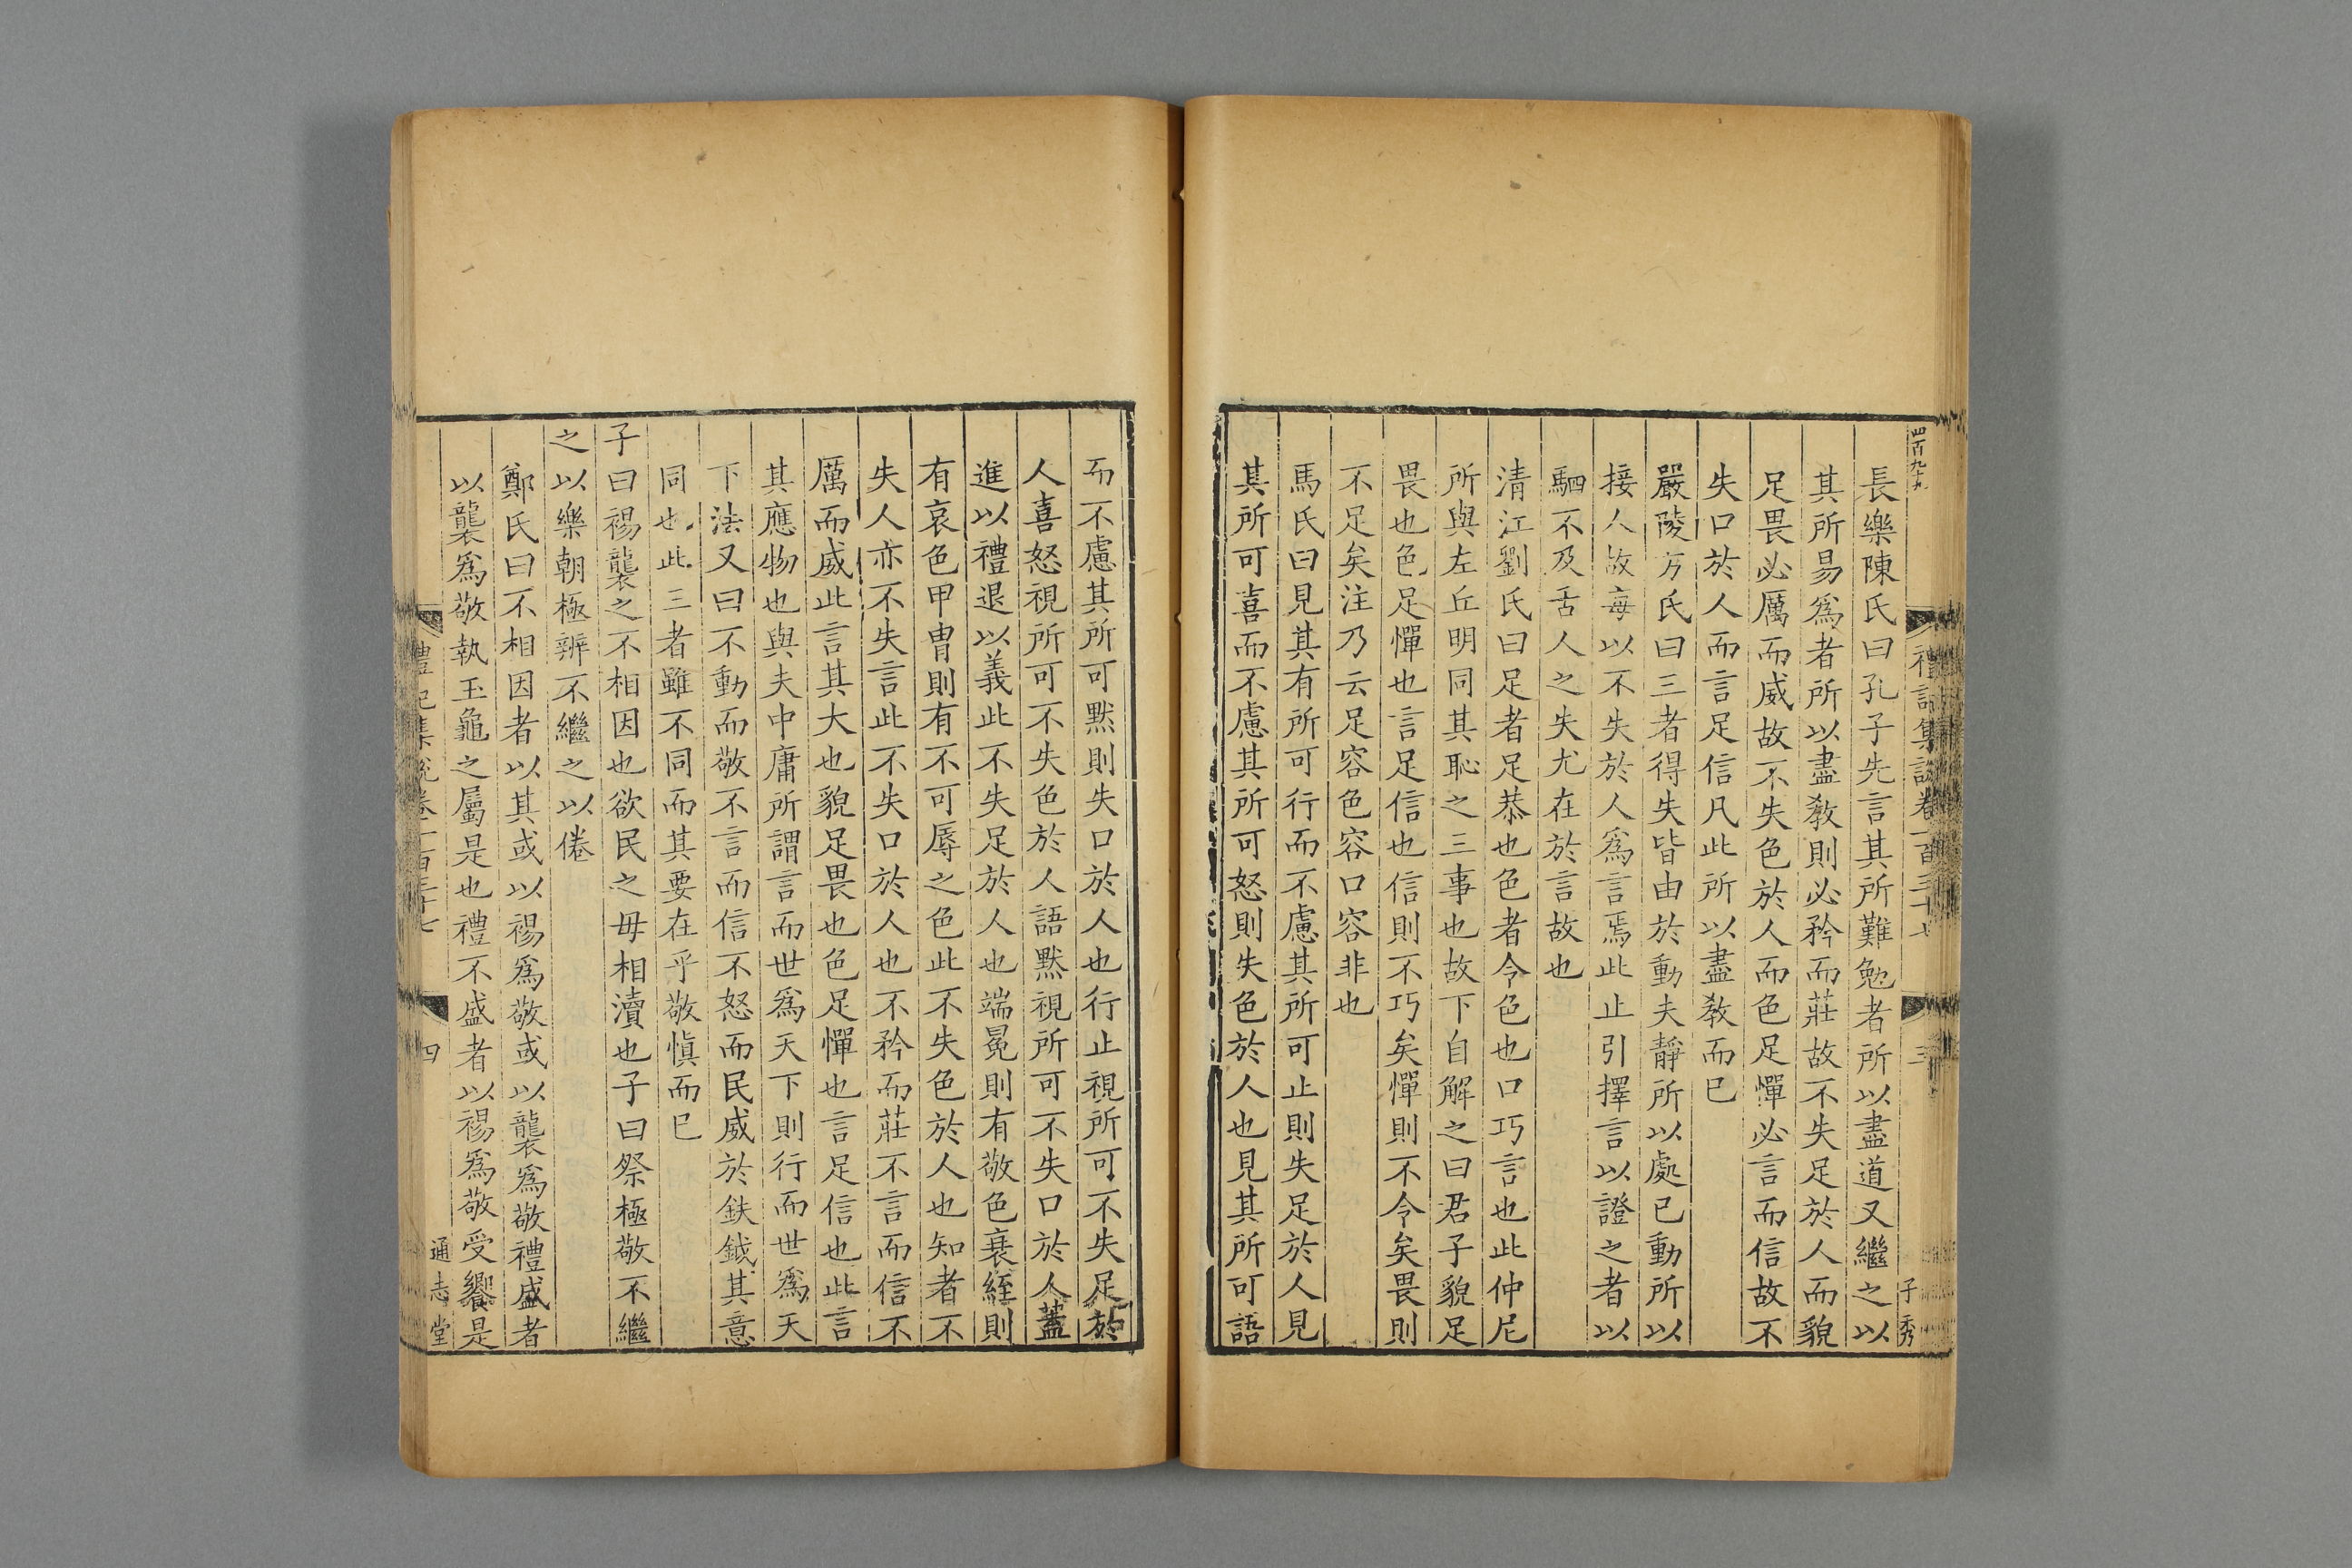 四百九十九
禮記集說卷一百三十七
三
子秀
長樂陳氏曰孔子先言其所難勉者所以盡道又繼之以
其所易爲者所以盡敎則必矜而莊故不失足於人而貌
足畏必厲而威故不失色於人而色足憚必言而信故不
失口於人而言足信凡此所以盡敎而已
嚴陵方氏曰三者得失皆由於動夫靜所以處已動所以
接人故每以不失於人爲言焉此止引擇言以證之者以
駟不及舌人之失尤在於言故也
清江劉氏曰足者足恭也色者令色也口巧言也此仲尼
所與左丘明同其恥之三事也故下自解之曰君子貌足
畏也色足憚也言足信也信則不巧矣憚則不令矣畏則
不足矣注乃云足容色容口容非也
馬氏曰見其有所可行而不慮其所可止則失足於人見
其所可喜而不慮其所可怒則失色於人也見其所可語
而不慮其所可黙則失口於人也行止視所可不失足於
人喜怒視所可不失色於人語黙視所可不失口於人蓋
進以禮退以義此不失足於人也端冕則有敬色衰絰則
有哀色甲冑則有不可辱之色此不失色於人也知者不
失人亦不失言此不失口於人也不矜而莊不言而信不
厲而威此言其大也貌足畏也色足憚也言足信也此言
其應物也與夫中庸所謂言而世爲天下則行而世爲天
下法又曰不動而敬不言而信不怒而民威於鈇鉞其意
同也此三者雖不同而其要在乎敬愼而已
子曰裼襲之不相因也欲民之毋相瀆也子曰祭極敬不繼
之以樂朝極辨不繼之以倦
鄭氏曰不相因者以其或以裼爲敬或以襲爲敬禮盛者
以襲爲敬執玉龜之屬是也禮不盛者以裼爲敬受饗是
禮記集說卷一百三十七
四
通志堂